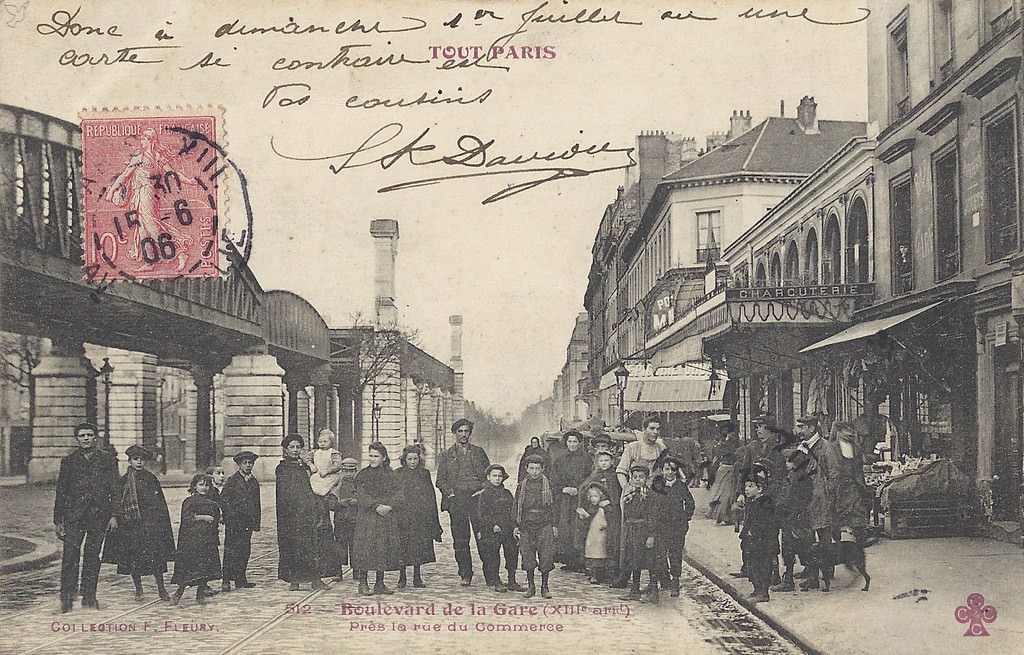 Donc à dimanche 1er Juillet ou une
carte si contraire est
TOUT PARIS
Vos cousins
RÉPUBLIQUE FRANÇAISE
10c
POSTES
30
15 - 6
06
CHARCUTERIE
512 - Boulevard de la Gare (XIIIe arrt)
Près la rue du Commerce
COLLECTION F. FLEURY.
C C C